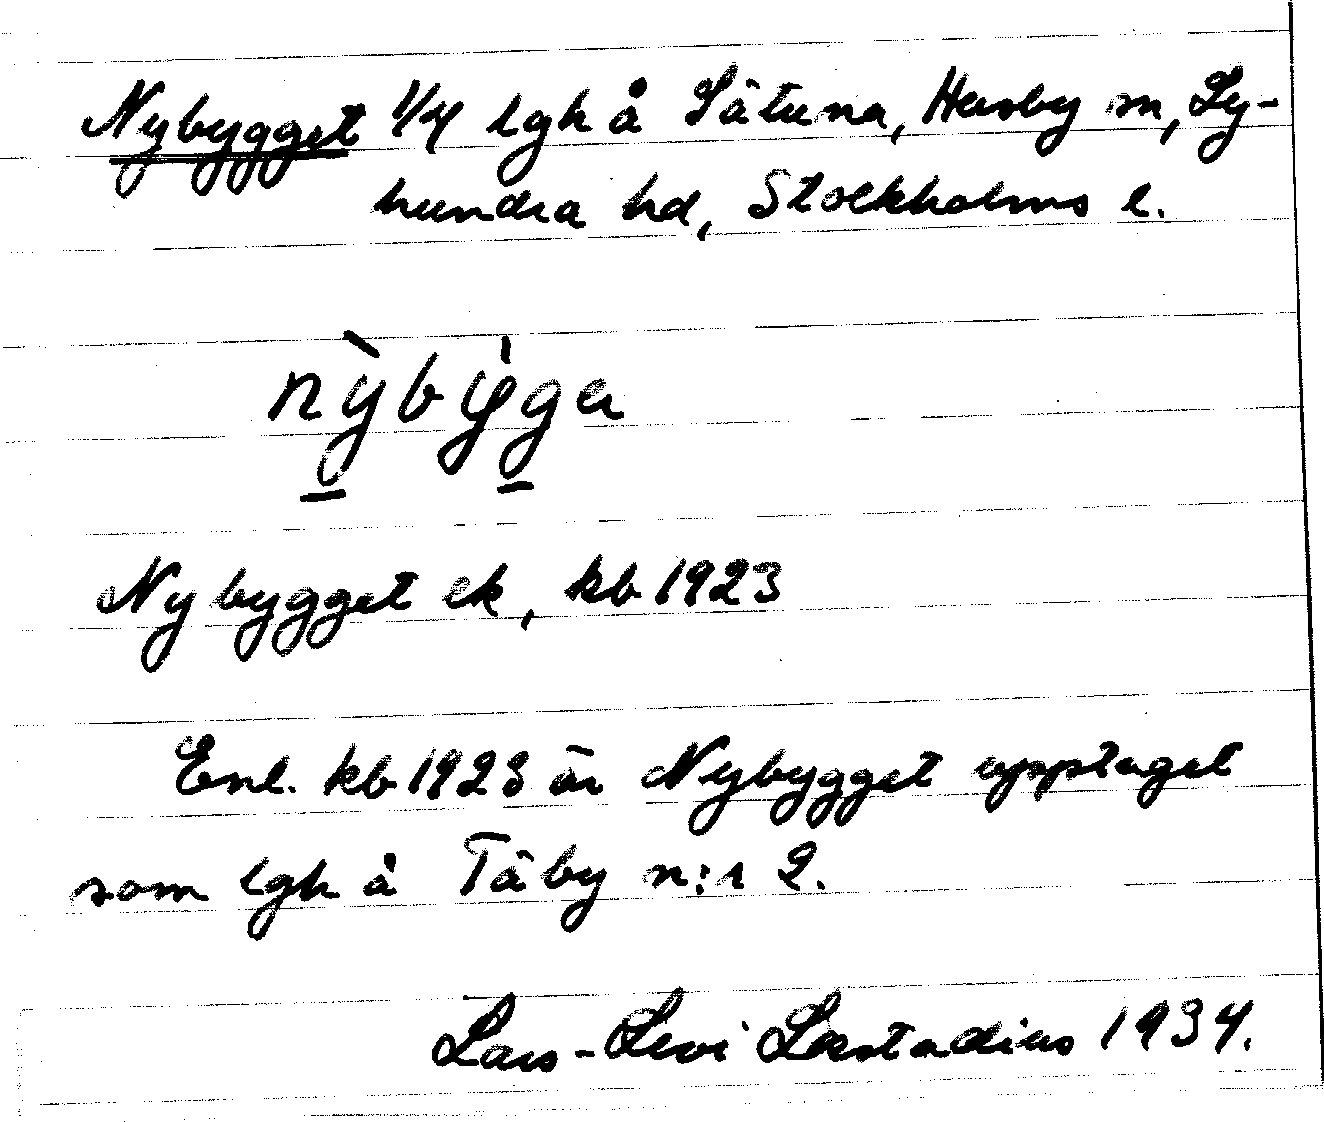 Nybygget 1/4 lgh å Sätuna, Husby sn, Ly-
hundra hd, Stockholms l.
nỳbýga
Nybygget ek, kb 1923
Enl. kb 1923 är Nybygget upptaget
som lgh å Täby n:r 2.
Lars-Levi Læstadius 1934.